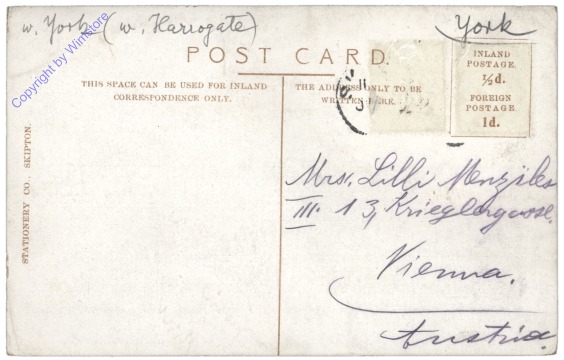 w. York (w. Harrogate)
York
Copyright by Winstore
POST CARD.
THIS SPACE CAN BE USED FOR INLAND
CORRESPONDENCE ONLY.
THE ADDRESS ONLY TO BE
WRITTEN HERE.
INLAND
POSTAGE.
½d.
FOREIGN
POSTAGE.
1d.
STATIONERY CO., SKIPTON.
Mrs. Lilli Menzäles
III. 13, Krieglergasse.
Vienna.
Austria.